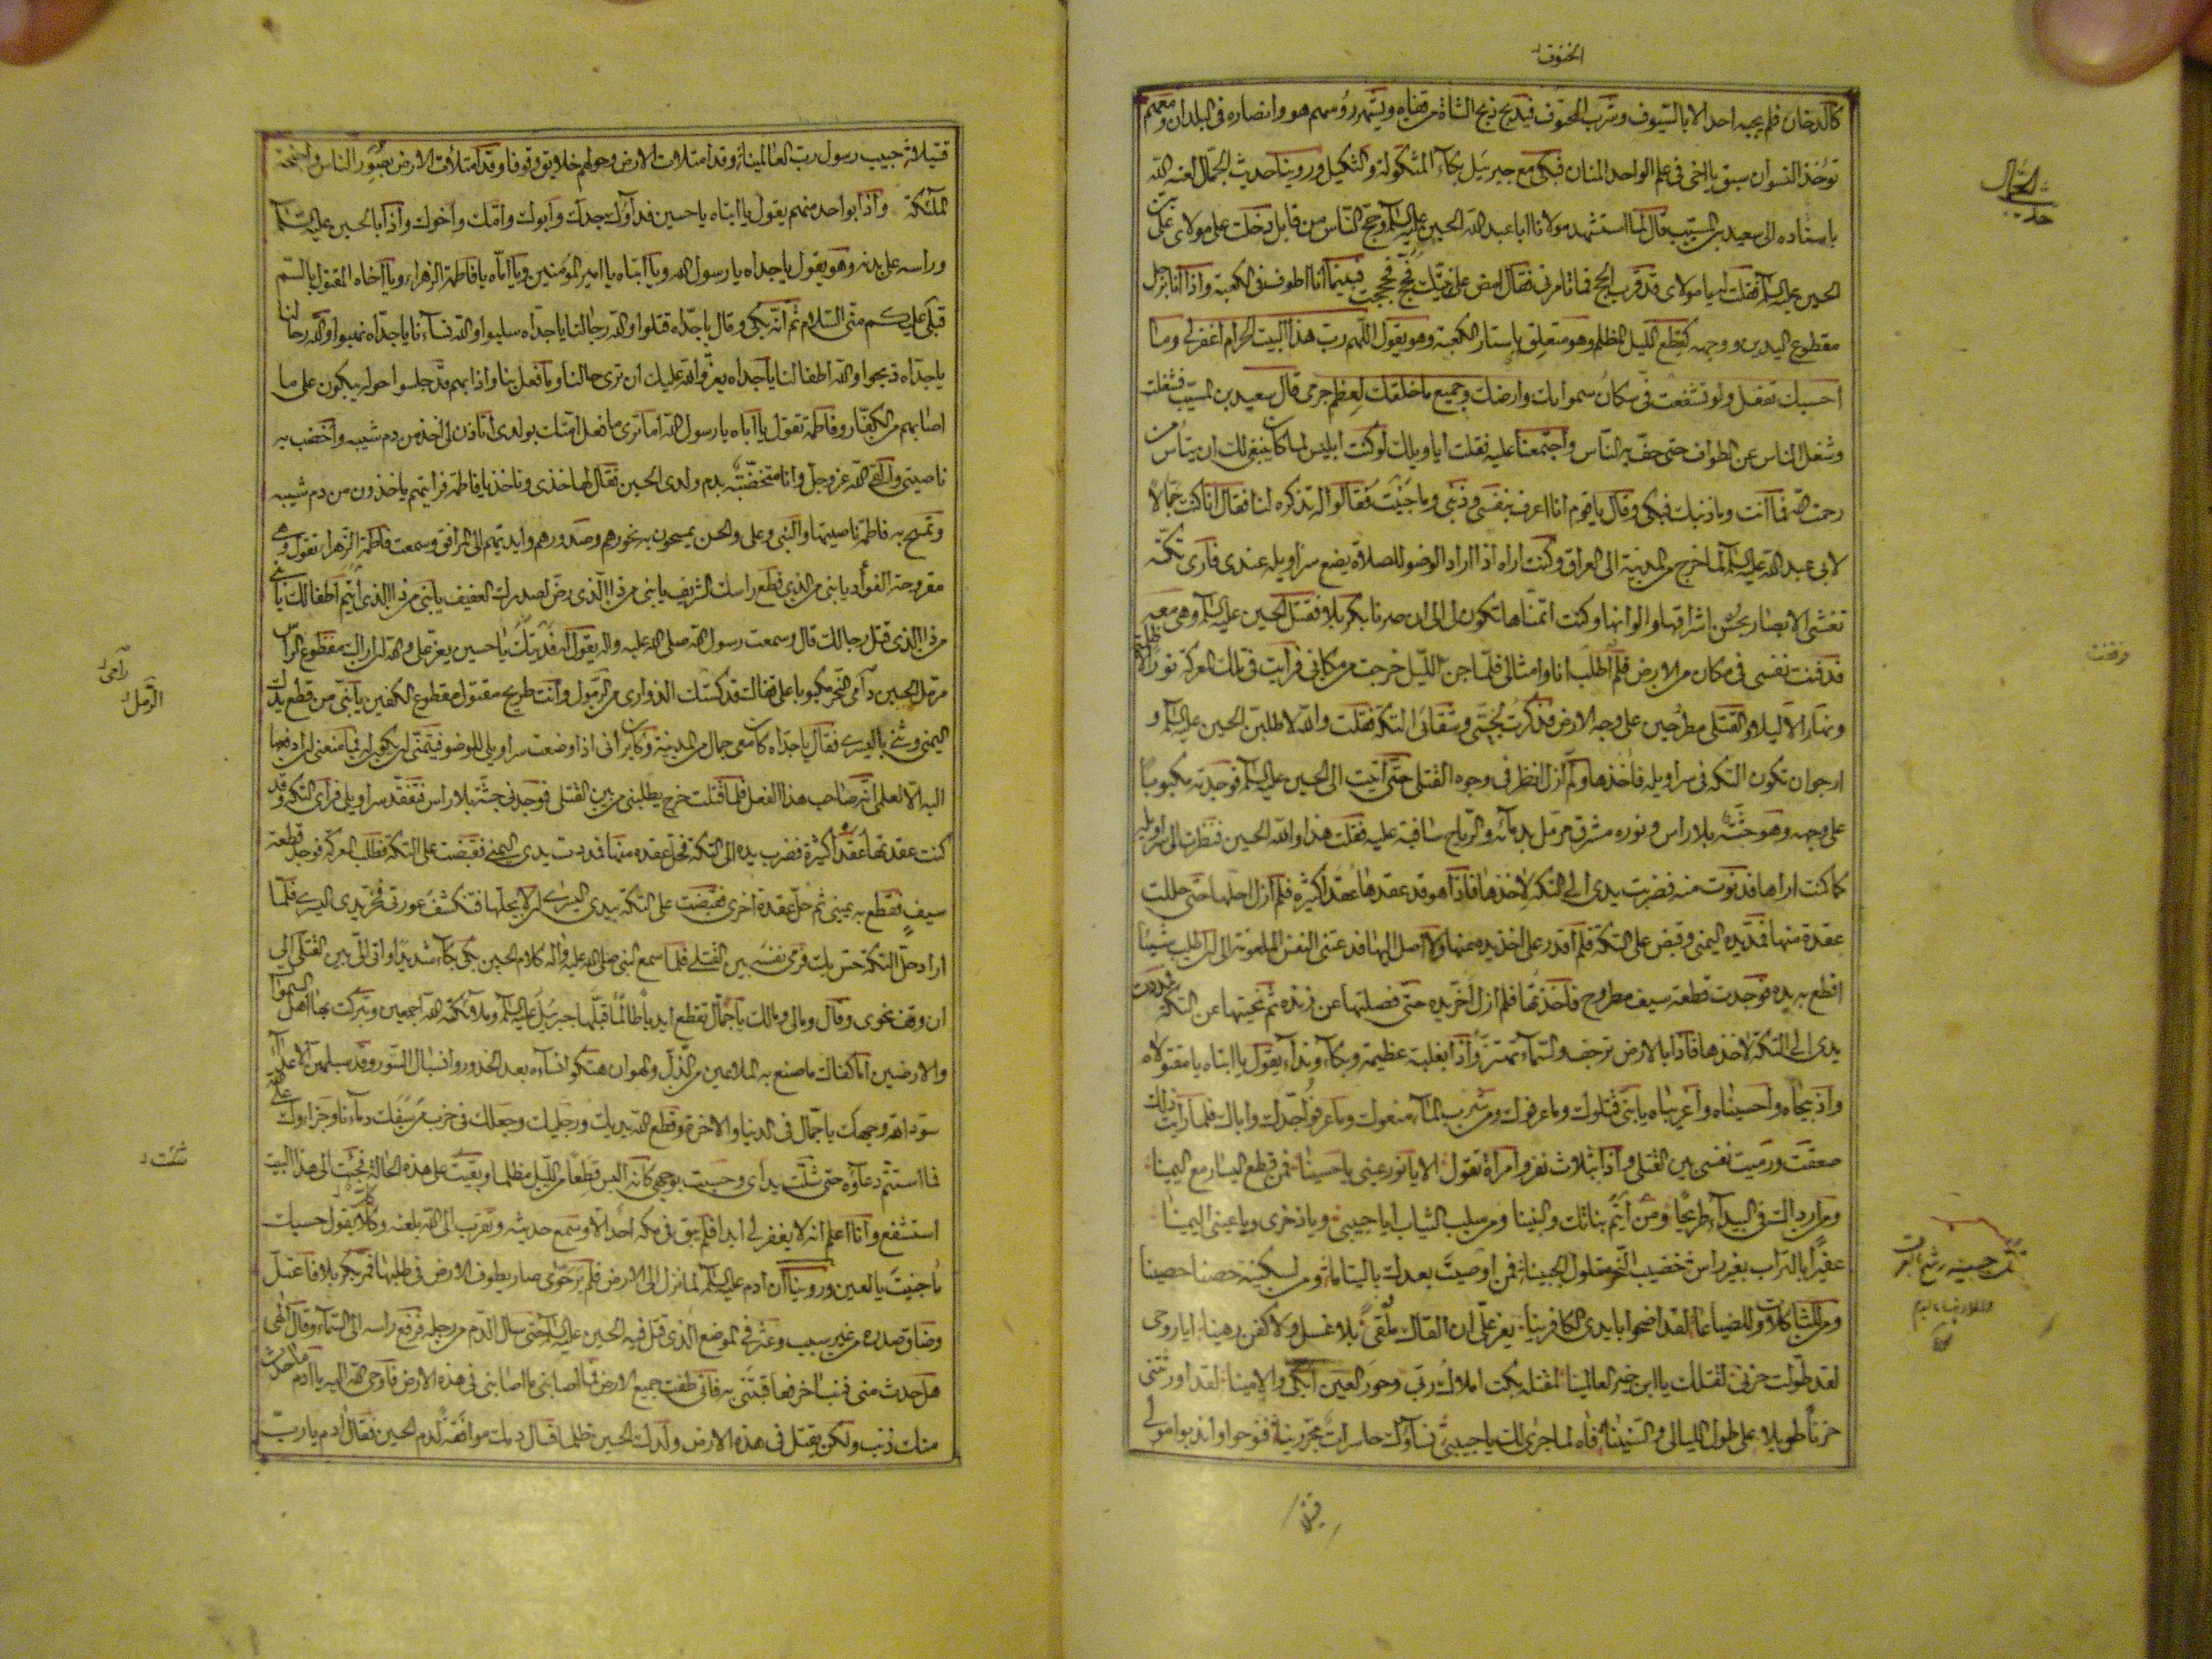 الحتوف
كالدخان فلم يجبه احد الا بالسيوف وشرب الحتوف فيذبح ذبح الشاة من قفاه ويشهر رؤسهم هو وانصاره في البلدان ومعهم
تؤخذ النسوان سبق يا اخي في علم الواحد المنان فبكى مع جبرئيل بكاء المثكولة والثكيل وروينا حديث الجمال لعنه الله
حديث الجمال
باسناده الى سعيد بن المسيب قال لما استشهد مولانا ابا عبد الله الحسين عليه السلم وحج الناس من قابل دخلت على مولاي علي بن
الحسين عليه السلم فقلت له يا مولاي قد قرب الحج فما تامرني فقال امض على نيتك فحج فحججت فبينما انا اطوف في الكعبة واذا انا برجل
مقطوع اليدين ووجهه كقطع الليل المظلم وهو متعلق باستار الكعبة وهو يقول اللهم رب هذا البيت الحرام اغفر لي وما
احسبك تفعل ولو تشفعت في سكان سمواتك وارضك وجميع ما خلقت لعظم جرمي قال سعيد بن المسيب فشغلت
وشغل الناس عن الطواف حتى حف به الناس واجتمعنا عليه فقلت ايا ويلك لو كنت ابليس لما كان ينبغي لك ان تيأس من
رحمة الله فما انت وما ذنبك فبكى وقال يا قوم انا اعرف بنفسي وذنبي وما جنيت فقالوا له تذكره لنا فقال انا كنت جمالا
لابي عبد الله عليه السلم لما خرج من المدينة الى العراق وكنت اراه اذا اراد الوضو للصلاة يضع سراويله عندي فارى تكته
تغشى الابصار بحسن اشراقها والوانها وكنت اتمناها تكون لي الى ان صرنا بكربلا فقتل الحسين عليه السلم وهي معه
فدفنت نفسي في مكان من الارض فلم اطلب انا وامثالي فلما جن الليل خرجت من مكاني فرايت في تلك المعركة نورا لا ظلمة
ونهارا لا ليلا والقتلى مطرحين على وجه الارض فذكرت لخبثي وشقائي التكة فقلت والله لاطلبن الحسين عليه السلم و
ارجو ان تكون التكة في سراويله فاخذها ولم ازل انظر في وجوه القتلى حتى اتيت الى الحسين عليه السلم فوجدته مكبوبا
على وجهه وهو جثة بلا راس ونوره مشرق مرمل بدمائه والرياح سافية عليه فقلت هذا والله الحسين فنظرت الى سراويله
كما كنت اراها فدنوت منه فضربت يدي الى التكة لاخذها فاذا هو قد عقدها عقدا كثيرة فلم ازل احلها حتى حللت
عقدة منها فمد يده اليمنى وقبض على التكة فلم اقدر على اخذ يده عنها ولا اصل اليها فدعتني النفس الملعونة الى ان اطلب شيئا
اقطع به يده فوجدت قطعة سيف مطروح فاخذتها فلم ازل احز يده حتى فصلتها عن زنده ثم نحيتها عن التكة ومددت
يدي الى التكة لاخذها فاذا بالارض ترجف والسماء تهتز واذا بغلبة عظيمة وبكاء ونداء يقول يا ابتاه يا مقتولاه
واذبيحاه واحسيناه واغريباه يا بني قتلوك وما عرفوك ومن شرب الماء منعوك وما عرفوا جدك واباك فلما رايت ذلك
صعقت ورميت نفسي بين القتلى واذا بثلاث نفر وامراة تقول الا يا نور عيني يا حسينا فمن قطع اليسار مع اليمينا
ومن اردا السر في البيداء طريحا ومن ايتم بناتك والبنينا ومن سلب الثياب ايا حبيبي ويا ذخري ويا عيني اليمينا
عفيرا بالتراب بغير راس خضيب النحر مغلول الجبينا فمن اوصيت بعدك باليتاما ومن لسكينة حصنا حصينا
ومن للثاكلات وللضياعا لقد اضحوا بايدي الكافرينا يعز علي ان القاك ملقى بلا غسل ولا كفن رهينا ايا روحي
لقد طولت حزني لقتلك يا ابن خير العالمينا لمقتله بكت املاك ربي وحور العين تبكي والامينا لقد اورثتني
حزنا طويلا على طول الليالي والسنينا فاه لما جرى لك يا حبيبي نساؤك حاسرات مجردينا فنوحوا واندبوا مولى
قتيلا
قتيلا في حبيب رسول رب العالمينا وقد امتلات الارض وحولهم خلايق وقوفا وقد امتلات الارض بصور الناس واجنحة
الملئكة واذا بواحد منهم يقول يا ابتاه يا حسين فداؤك جدك وابوك وامك واخوك واذا بالحسين عليه السلم
وراسه على بدنه وهو يقول يا جداه يا رسول الله ويا ابتاه يا امير المؤمنين ويا اماه يا فاطمة الزهراء ويا اخاه المقتول بالسم
قبلي عليكم مني السلام ثم انه بكى وقال يا جداه قتلوا والله رجالنا يا جداه سلبوا والله نساءنا يا جداه نهبوا والله رحالنا
يا جداه ذبحوا والله اطفالنا يا جداه يعز والله عليك ان ترى حالنا وما فعل بنا واذا بهم قد جلسوا حوله يبكون على ما
اصابهم من الكفار وفاطمة تقول يا اباه يا رسول الله اما ترى ما فعل امتك بولدي اتاذن لي اخذ من دم شيبه واخضب به
ناصيتي والقى الله عز وجل وانا مختضبة بدم ولدي الحسين فقال لها خذي وناخذ يا فاطمة فرايتهم ياخذون من دم شيبه
وتمسح به فاطمة ناصيتها والنبي وعلي والحسن يمسحون به نحورهم وصدورهم وايديهم الى المرافق وسمعت فاطمة الزهراء تقول وهي
مقروحة الفؤاد يا بني من الذي قطع راسك الشريف يا بني من ذا الذي رض لصدرك العفيف يا بني من ذا الذي ايتم اطفالك يا بني
من ذا الذي قتل رجالك قال وسمعت رسول الله صلى الله عليه واله يقول له فديتك يا حسين يعز علي والله ان اراك مقطوع الراس
مرمل الجبين دامي النحر مكبوبا على قفاك قد كستك الذواري من الرمول وانت طريح مقتول مقطوع الكفين يا بني من قطع يدك
اليمنى وثنى باليسرى فقال يا جداه كان معي جمال من المدينة وكان يراني اذا وضعت سراويلي للوضو فيتمنى ان تكون له فما منعني ان ادفعها
اليه الا لعلمي انه صاحب هذا الفعل فلما قتلت خرج يطلبني من بين القتلى فوجدني جثة بلا راس فتفقد سراويلي فراى التكة وقد
كنت عقدتها عقدا كثيرة فضرب يده الى التكة فحل عقدة منها فمددت يدي اليمنى فقبضت على التكة فطلب المعركة فوجد قطعة
سيف فقطع به يميني ثم حل عقدة اخرى فقبضت على التكة بيدي اليسرى لان لا يحلها فتنكشف عورتي فحز يدي اليسرى فلما
اراد حل التكة حس بك فرمى نفسه بين القتلى فلما سمع النبي صلى الله عليه واله كلام الحسين بكى بكاء شديدا واتى الي بين القتلى الى
ان وقف نحوي وقال ومالي ومالك يا جمال تقطع ايديا طال ما قبلها جبرئيل عليه السلم وملائكة الله اجمعين وتبركت بها اهل السموات
والارضين اما كفاك ما صنع به الملاعين من الذل والهوان هتكوا نساءه بعد الخدور وانسبال الستور وقد سلبهن الاعداء
سود الله وجهك يا جمال في الدنيا والاخرة وقطع الله يديك ورجليك وجعلك في حزب من سفك دماءنا وجزاؤك على الله
فما استتم دعاؤه حتى شلت يداي وحسيت بوجهي كانه البس قطعا من الليل مظلما وبقيت على هذه الحالة فجئت الى هذا البيت
استشفع وانا اعلم انه لا يغفر لي ابدا فلم يبق في مكة احد الا وسمع حديثه وتقرب الى الله بلعنه وكلا يقول حسبك
ما جنيت يا لعين وروينا ان ادم عليه السلم لما نزل الى الارض فلم ير حوى صار يطوف الارض في طلبها فمر بكربلا فاعتل
وضاق صدره من غير سبب وعثر في الموضع الذي قتل فيه الحسين عليه السلم حتى سال الدم من رجله فرفع راسه الى السماء وقال الهي
هل حدث مني ذنب اخر فعاقبتني به فاني طفت جميع الارض فما اصابني ما اصابني في هذه الارض فاوحى الله اليه يا ادم ما حدث
منك ذنب ولكن يقتل في هذه الارض ولدك الحسين ظلما فسال دمك موافقة لدم الحسين فقال ادم يا رب